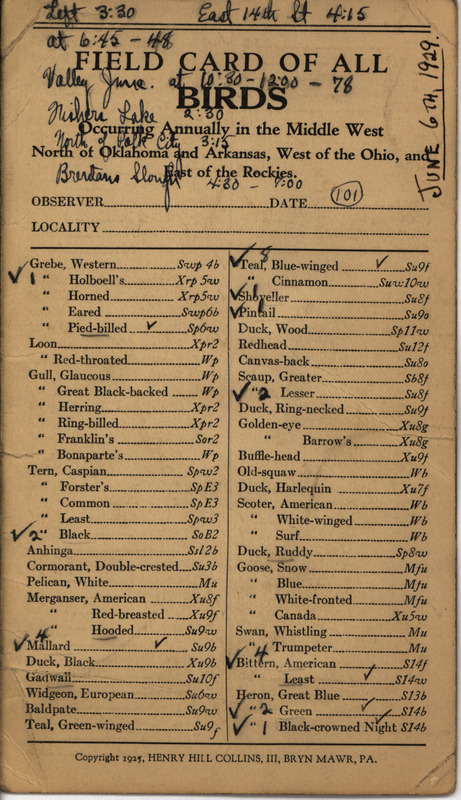 Left 3:30 East 14th St 4:15
at 6:45 - 48
FIELD CARD OF ALL
Valley Junc. at 10:30 - 12:00 - 78
BIRDS
Fishers Lake 2:30
Occurring Annually in the Middle West
North of Polk City 3:15
North of Oklahoma and Arkansas, West of the Ohio, and
East of the Rockies.
Slough 4:30 - 7:00
JUNE 6TH, 1929.
OBSERVER DATE 101
LOCALITY
Grebe, Western Swp 4b
✓ 1 " Holboell's Xrp 5w
" Horned Xrp5w
" Eared Swp6b
" Pied-billed ✓ Sp6w
Loon Xpr2
" Red-throated Wp
Gull, Glaucous Wp
" Great Black-backed Wp
" Herring Xpr2
" Ring-billed Xpr2
" Franklin's Sor2
" Bonaparte's Wp
Tern, Caspian Spw2
" Forster's SpE3
" Common SpE3
" Least Spw3
✓ 2 " Black SoB2
Anhinga Ss12b
Cormorant, Double-crested Su3b
Pelican, White Mu
Merganser, American Xu8f
" Red-breasted Xu9f
" Hooded Su9w
✓ 4 Mallard ✓ Su9b
Duck, Black Xu9b
Gadwall Su10f
Widgeon, European Su6w
Baldpate Su9w
Teal, Green-winged Su9f
✓ 8 Teal, Blue-winged ✓ Su9f
" Cinnamon Suw10w
✓ 1 Shoveller Su8f
✓ 1 Pintail Su9o
Duck, Wood Sp11w
Redhead Su12f
Canvas-back Su8o
Scaup, Greater Sb8f
✓ " 2 Lesser Su8f
Duck, Ring-necked Su9f
Golden-eye Xu8g
" Barrow's Xu8g
Buffle-head Xu9f
Old-squaw Wb
Duck, Harlequin Xu7f
Scoter, American Wb
" White-winged Wb
" Surf Wb
Duck, Ruddy Sp8w
Goose, Snow Mfu
" Blue Mfu
" White-fronted Mfu
" Canada Xu5w
Swan, Whistling Mu
" Trumpeter Mu
✓ 4 Bittern, American ✓ S14f
" Least ✓ S14w
Heron, Great Blue S13b
✓ " 2 Green ✓ S14b
✓ " 1 Black-crowned Night S14b
Copyright 1925, HENRY HILL COLLINS, III, BRYN MAWR, PA.